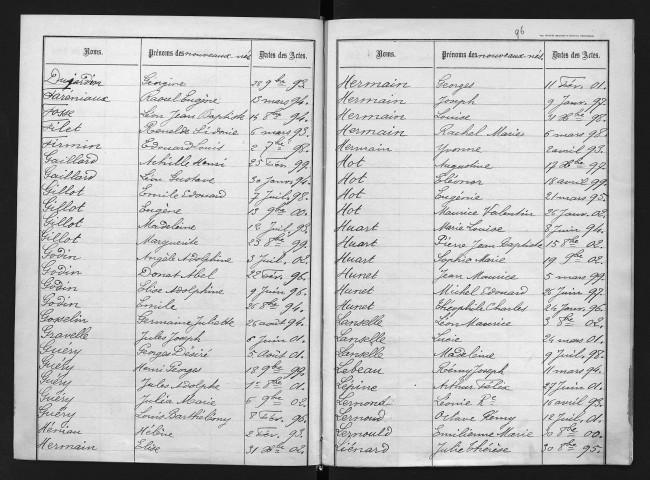 Noms. Prénoms des nouveaux nés. Dates des Actes.
Dujardin Eugène 28 9bre 93.
Faréniaux Raoul Eugène 13 mars 94.
Fosse Léon Jean Baptiste 14 8bre 94.
Filet Renelle Sidonie 6 mars 93.
Firmin Edouard Louis 2 7bre 98.
Gaillard Achille Henri 25 Fév. 99.
Gaillard Léon Gustave 30 Janv. 94.
Gillot Emile Edouard 7 Juil. 98.
Gillot Eugène 13 9bre 00.
Gillot Madeleine 12 Juil. 93.
Gillot Marguerite 23 8bre 99.
Godin Angèle Adolphine 3 Juil. 02.
Godin Donat Abel 22 Fév. 96.
Godin Elise Adolphine 9 Juin 96.
Godin Emile 26 8bre 94.
Gosselin Germaine Juliette 26 août 94.
Gravelle Jules Joseph 6 Juin 01.
Guéry Georges Désiré 5 Août 01.
Guéry Henri Georges 18 9bre 99.
Guéry Jules Adolphe 1er 8bre 01.
Guéry Julia Marie 6 9bre 02.
Guéry Louis Barthélémy 8 Fév. 96.
Héniau Hélène 2 Fév. 93.
Hermain Elise 31 Xbre 02.
96
Noms. Prénoms des nouveaux nés. Dates des Actes.
Hermain Georges 11 Fév. 01.
Hermain Joseph 9 Janv. 97.
Hermain Louise 31 Xbre 98.
Hermain Rachel Marie 6 mars 98.
Hermain Yvonne 2 avril 93.
Hot Augustine 17 Xbre 97.
Hot Eléonor 18 avril 99.
Hot Eugénie 21 mars 95.
Hot Maurice Valentin 25 Janv. 02.
Huart Marie Louise 8 Juin 94.
Huart Pierre Jean Baptiste 15 8bre 02.
Huart Sophie Marie 19 9bre 02.
Hunet Jean Maurice 5 mars 99.
Hunet Michel Edouard 25 Juin 97.
Hunet Théophile Charles 24 Janv. 96.
Lanselle Léon Maurice 3 8bre 02.
Lanselle Lucie 24 mars 01.
Lanselle Madeleine 9 Juil. 98.
Lebeau Rémy Joseph 11 mars 94.
Lépine Arthur Félix 27 Juin 01.
Lernond Léonie 16 avril 93.
Lernoud Octave Rémy 12 Juil. 01.
Lernould Emilienne Marie 20 8bre 00.
Liénard Julie Thérèse 30 8bre 95.